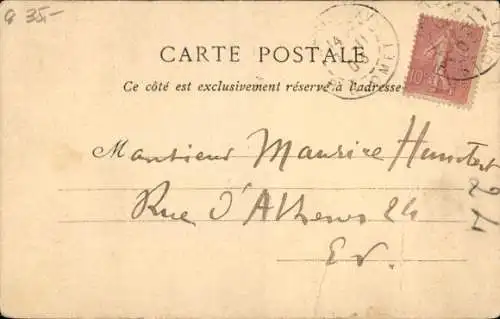 G 35.-
CARTE POSTALE
Ce côté est exclusivement réservé à l'adresse
10
Monsieur Maurice
Rue d'Athènes 24
E.V.